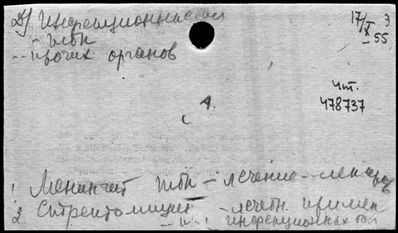 Д) Инфекционные бол
- тбк
- прочих органов
17/X 55
3
Чт.
478737
A.
1 Менингит тбк - лечение - лекарс
2 Стрептомицин - лечебн примен
- " - инфекционных бол